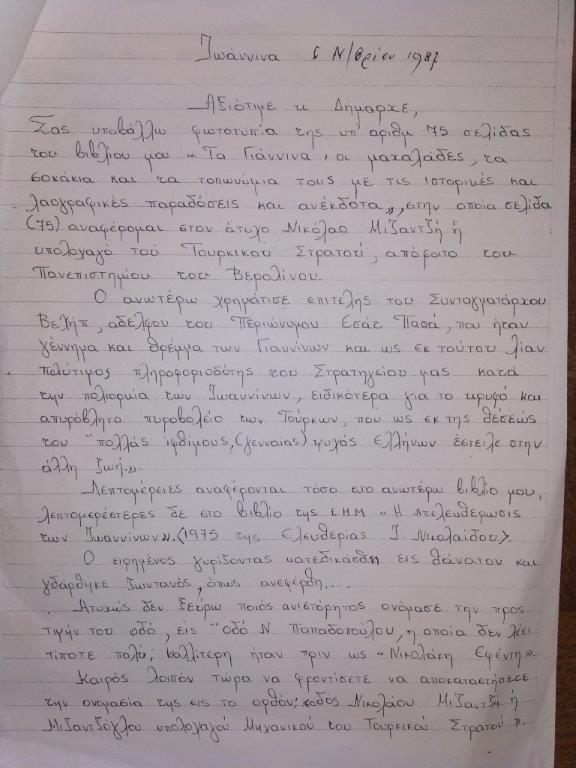 Ιωάννινα 6 Ν/βρίου 1987
Αξιότιμε κ Δήμαρχε,
Σας υποβάλλω φωτοτυπία της υπ' αριθμ 75 σελίδας
του βιβλίου μου «Τα Γιάννινα, οι μαχαλάδες, τα
σοκάκια και τα τοπωνύμια τους με τις ιστορικές και
λαογραφικές παραδόσεις και ανέκδοτα», στην οποία σελίδα
(75) αναφέρομαι στον άτυχο Νικόλαο Μιζαντζή ή
υπολοχαγό τού Τουρκικού Στρατού, απόφοιτο του
Πανεπιστημίου του Βερολίνου.
Ο ανωτέρω χρημάτισε επιτελής του Συνταγματάρχου
Βεχήπ, αδελφού του Περιώνυμου Εσάτ Πασά, που ήταν
γέννημα και θρέμμα των Γιαννίνων και ως εκ τούτου λίαν
πολύτιμος πληροφοριοδότης του Στρατηγείου μας κατά
την πολιορκία των Ιωαννίνων, ειδικότερα για το κρυφό και
απυρόβλητο πυροβολείο των Τούρκων, πού ως εκ της θέσεώς
του "πολλάς ιφθίμους, (γενναίας) ψυχάς Ελλήνων έστειλε στην
άλλη ζωή».
Λεπτομέρειες αναφέρονται τόσο στο ανωτέρω βιβλίο μου,
λεπτομερέστερες δε στο βιβλίο της ΕΗΜ «Η Απελευθέρωσις
των Ιωαννίνων». (1975 της Ελευθερίας Ι. Νικολαίδου).
Ο ειρημένος γυρίζοντας κατεδικάσθη εις θάνατον και
γδάρθηκε ζωντανός, όπως ανεφέρθη...
Ατυχώς δεν ξεύρω ποιός ανιστόρητος ονόμασε την προς
τιμήν του οδό, εις "Οδό Ν. Παπαδοπούλου, η οποία δεν λέει
τίποτε πολύ; καλλίτερη ήταν πριν ως «Νικολάκη Εφέντη».
Καιρός λοιπόν τώρα να φροντίσετε να αποκαταστήσετε
την ονομασία της εις το ορθόν; «οδός Νικολάου Μιζαντζή ή
Μιζαντζόγλου υπολοχαγού Μηχανικού του Τουρκικού Στρατού».